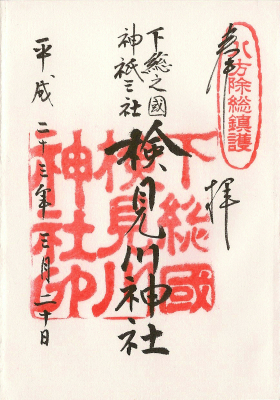 八方除総鎮護
奉拝
下総之國
神祇三社
検見川神社
下総國
検見川
神社印
平成二十三年三月二十日